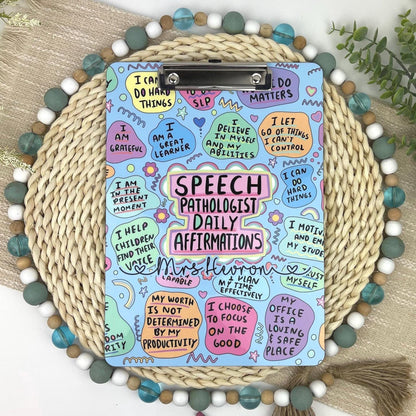 I CAN
DO HARD
THINGS
SLP
DO
MATTERS
I
AM
GRATEFUL
I
AM A
GREAT
LEARNER
I
BELIEVE
IN MYSELF
AND MY
ABILITIES
I LET
GO OF THINGS
I CAN'T
CONTROL
I AM
IN THE
PRESENT
MOMENT
SPEECH
PATHOLOGIST
DAILY
AFFIRMATIONS
I CAN
DO
HARD
THINGS
I HELP
CHILDREN
FIND THEIR
VOICE
I
AND
MY
Mrs.Huron
CAPABLE
I PLAN
MY TIME
EFFECTIVELY
MYSELF
MY WORTH
IS NOT
DETERMINED
BY MY
PRODUCTIVITY
I CHOOSE
TO FOCUS
ON THE
GOOD
MY
OFFICE IS
A LOVING
& SAFE
PLACE